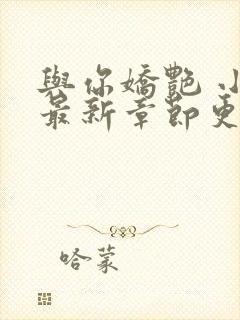 與你嬌艷 小
最新章節更
哈蒙